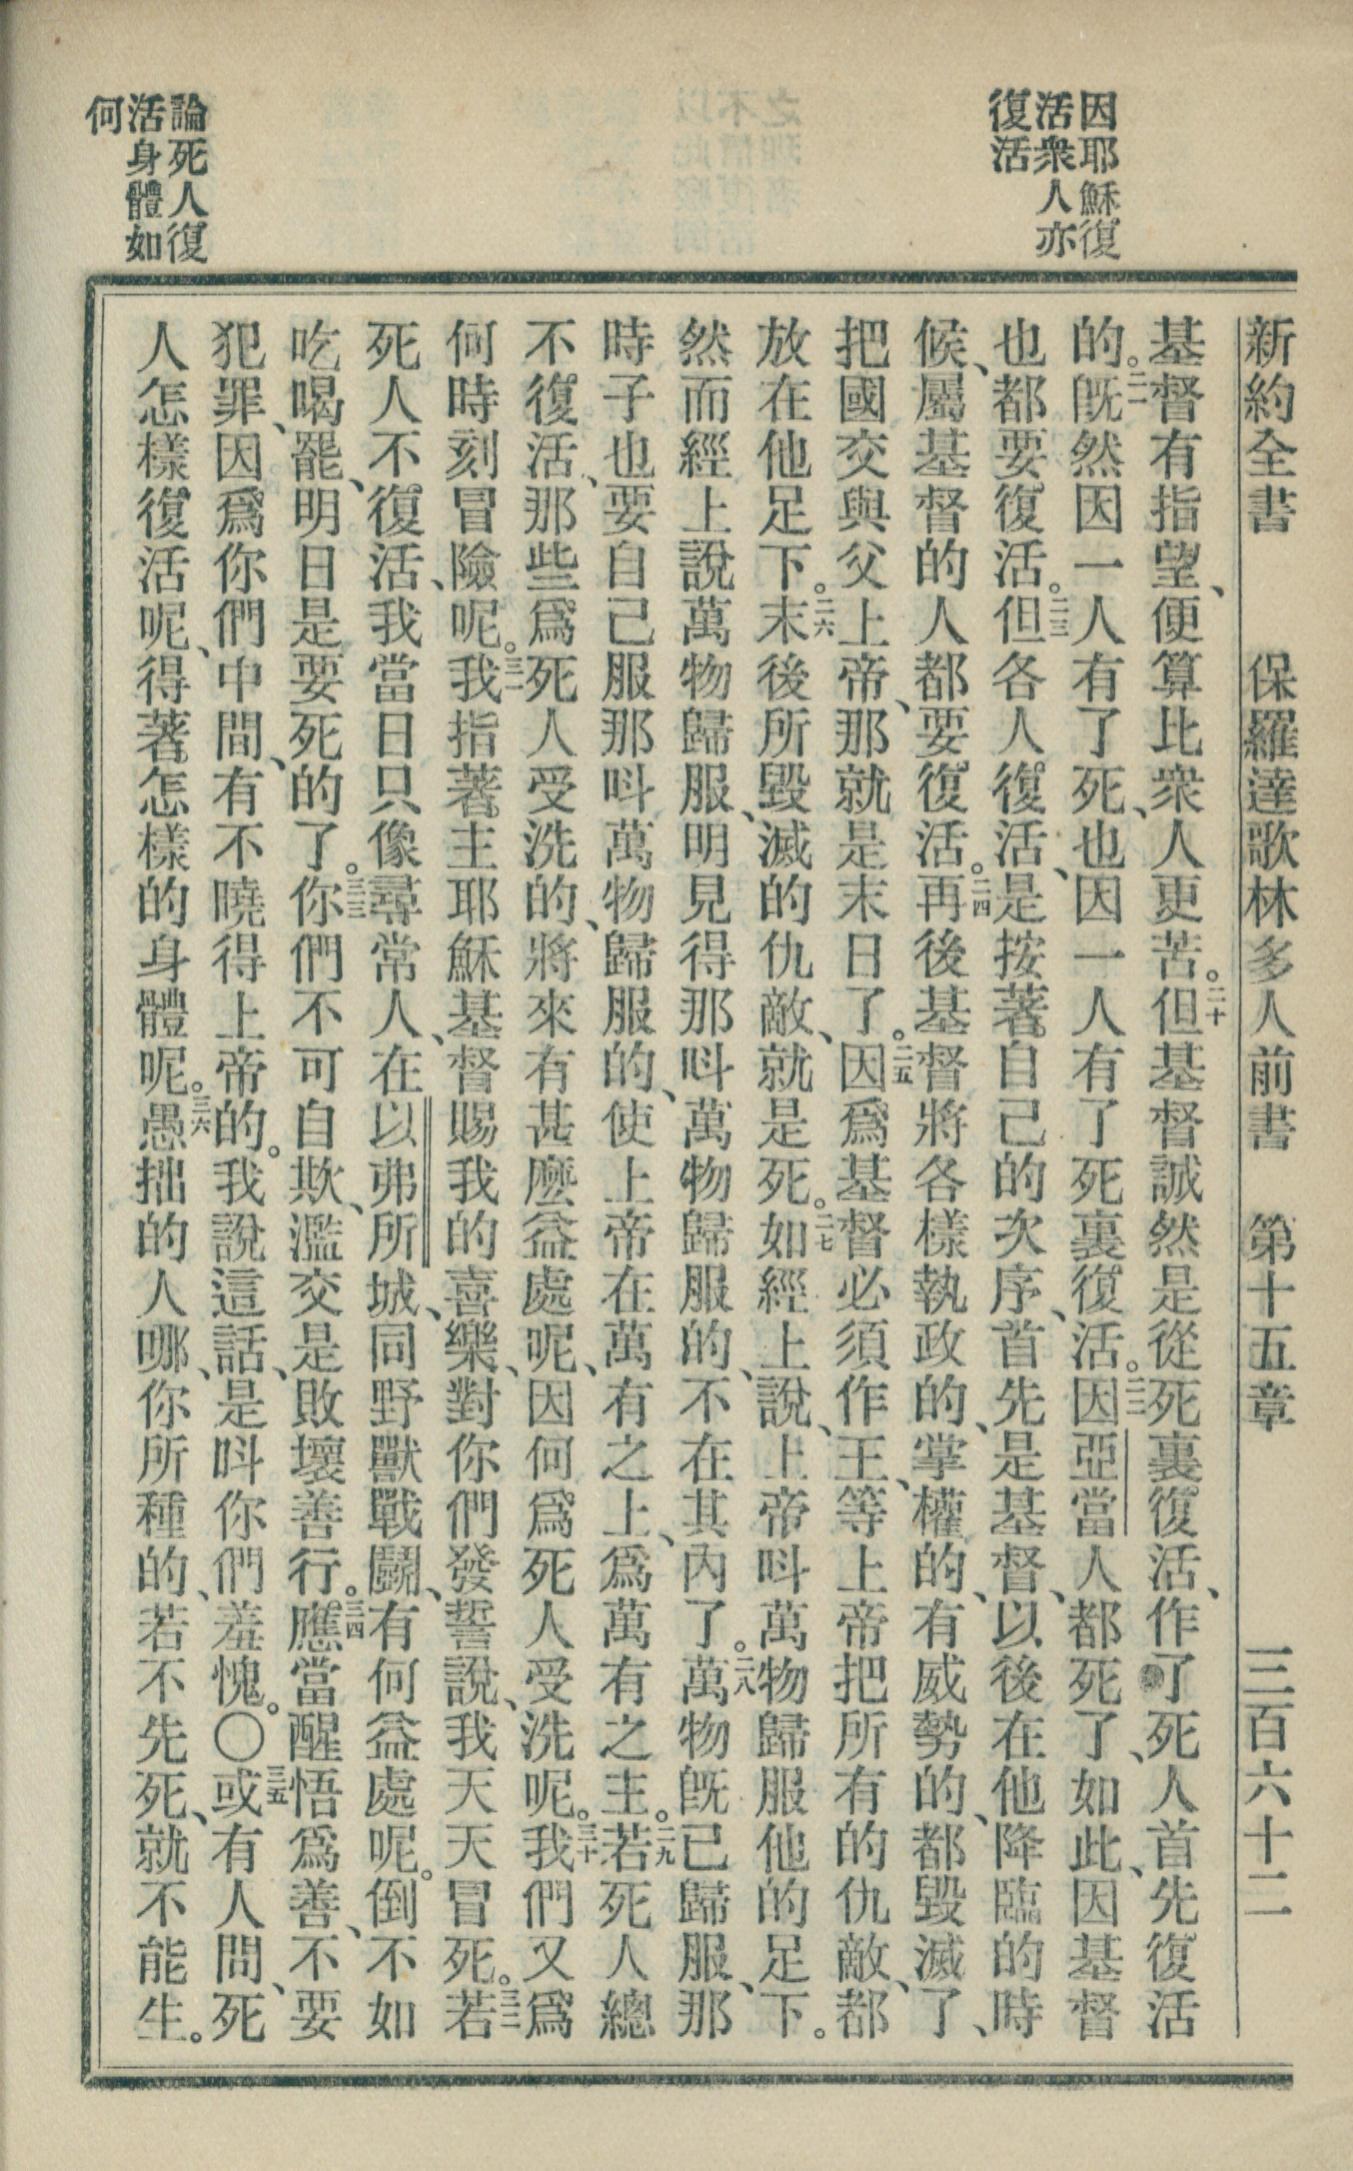 因耶穌復
活衆人亦
復活
論死人復
活身體如
何
新約全書 保羅達歌林多人前書 第十五章 三百六十二
基督有指望、便算比衆人更苦。二十但基督誠然是從死裏復活、作了死人首先復活
的。二一旣然因一人有了死、也因一人有了死裏復活。二二因亞當人都死了、如此、因基督
也都要復活。二三但各人復活、是按著自己的次序、首先是基督、以後在他降臨的時
候、屬基督的人都要復活。二四再後基督將各樣執政的、掌權的、有威勢的、都毀滅了、
把國交與父上帝、那就是末日了。二五因爲基督必須作王、等上帝把所有的仇敵、都
放在他足下。二六末後所毀滅的仇敵、就是死。二七如經上說、上帝呌萬物歸服他的足下。
然而經上說萬物歸服、明見得那呌萬物歸服的、不在其內了。二八萬物旣已歸服、那
時子也要自己服那呌萬物歸服的、使上帝在萬有之上、爲萬有之主。二九若死人總
不復活、那些爲死人受洗的、將來有甚麼益處呢、因何爲死人受洗呢。三十我們又爲
何時刻冒險呢。三一我指著主耶穌基督賜我的喜樂、對你們發誓說、我天天冒死。三二若
死人不復活、我當日只像尋常人、在以弗所城、同野獸戰鬭、有何益處呢。倒不如
吃喝罷、明日是要死的了。三三你們不可自欺、濫交是敗壞善行。三四應當醒悟爲善、不要
犯罪、因爲你們中間、有不曉得上帝的。我說這話、是呌你們羞愧。〇三五或有人問、死
人怎樣復活呢、得著怎樣的身體呢。三六愚拙的人哪、你所種的、若不先死、就不能生。